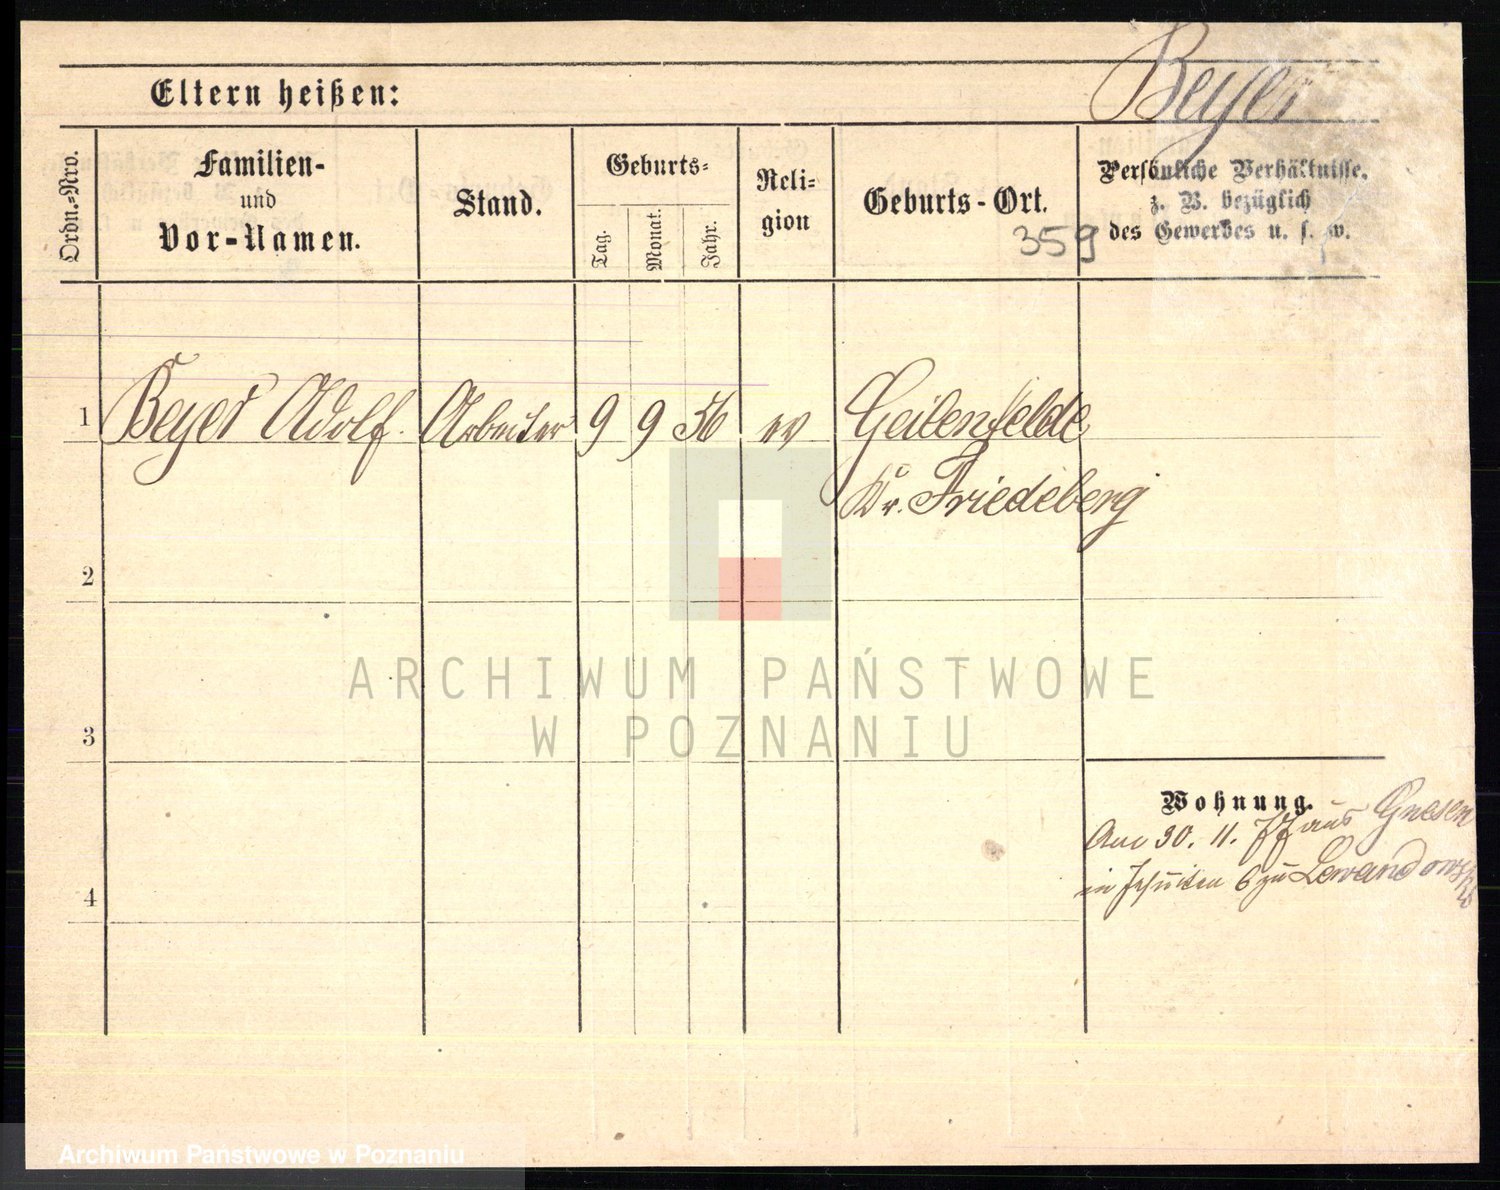 Beyer
Eltern heißen:
Ordn.-Nro.
Familien-
und
Vor-Namen.
Stand.
Geburts-
Tag.
Monat.
Jahr.
Reli-
gion
Geburts-Ort.
359
Persönliche Verhältnisse.
z. B. bezüglich
des Gewerbes u. s. w.
1 Beyer Adolf. Arbeiter 9 9 56 ev Geilenfelde
Kr. Friedeberg
2
3
4
Wohnung.
Am 30. 11. 77 aus Gnesen
in Jesuiten 6 zu Lewandowski
ARCHIWUM PAŃSTWOWE
W POZNANIU
Archiwum Państwowe w Poznaniu